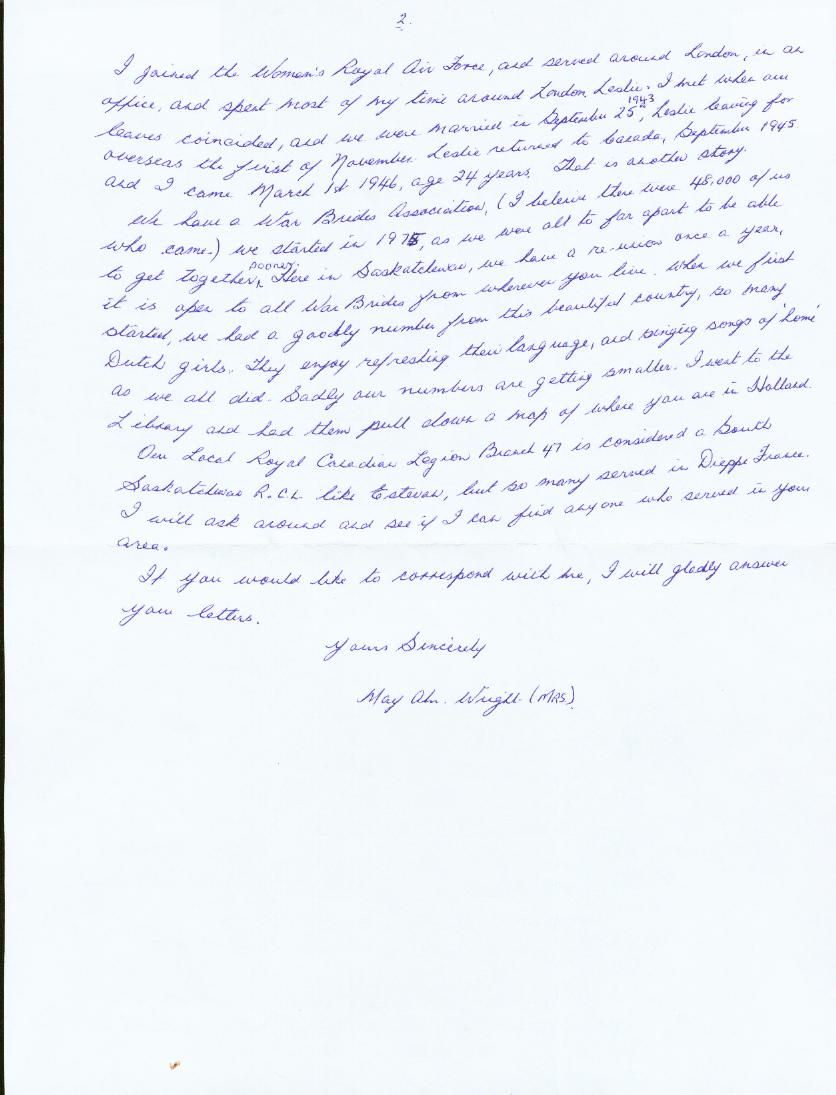 2.
I joined the Women's Royal Air Force, and served around London, in an
office, and spent most of my time around London. Leslie & I met when our
leaves coincided, and we were married in September 25th, 1943 Leslie leaving for
overseas the first of November. Leslie returned to Canada, September 1945
and I came March 1st 1946, age 24 years. That is another story.
We have a War Brides Association, (I beleive there were 48,000 of us
who came.) we started in 1975, as we were all to far apart to be able
to get together, sooner. Here in Saskatchewan, we have a re-union once a year,
it is open to all War Brides from wherever you live. When we first
started, we had a goodly number from this beautiful country, so many
Dutch girls. They enjoy refreshing their language, and singing songs of 'home'
as we all did. Sadly our numbers are getting smaller. I went to the
Library and had them pull down a map of where you are in Holland.
Our Local Royal Canadian Legion Branch 47 is considered a South
Saskatchewan R.C.L. like Estevan, but so many served in Dieppe France.
I will ask around and see if I can find anyone who served in your
area.
If you would like to correspond with me, I will gladly answer
your letters.
Yours Sincerely
May Wright (MRS).